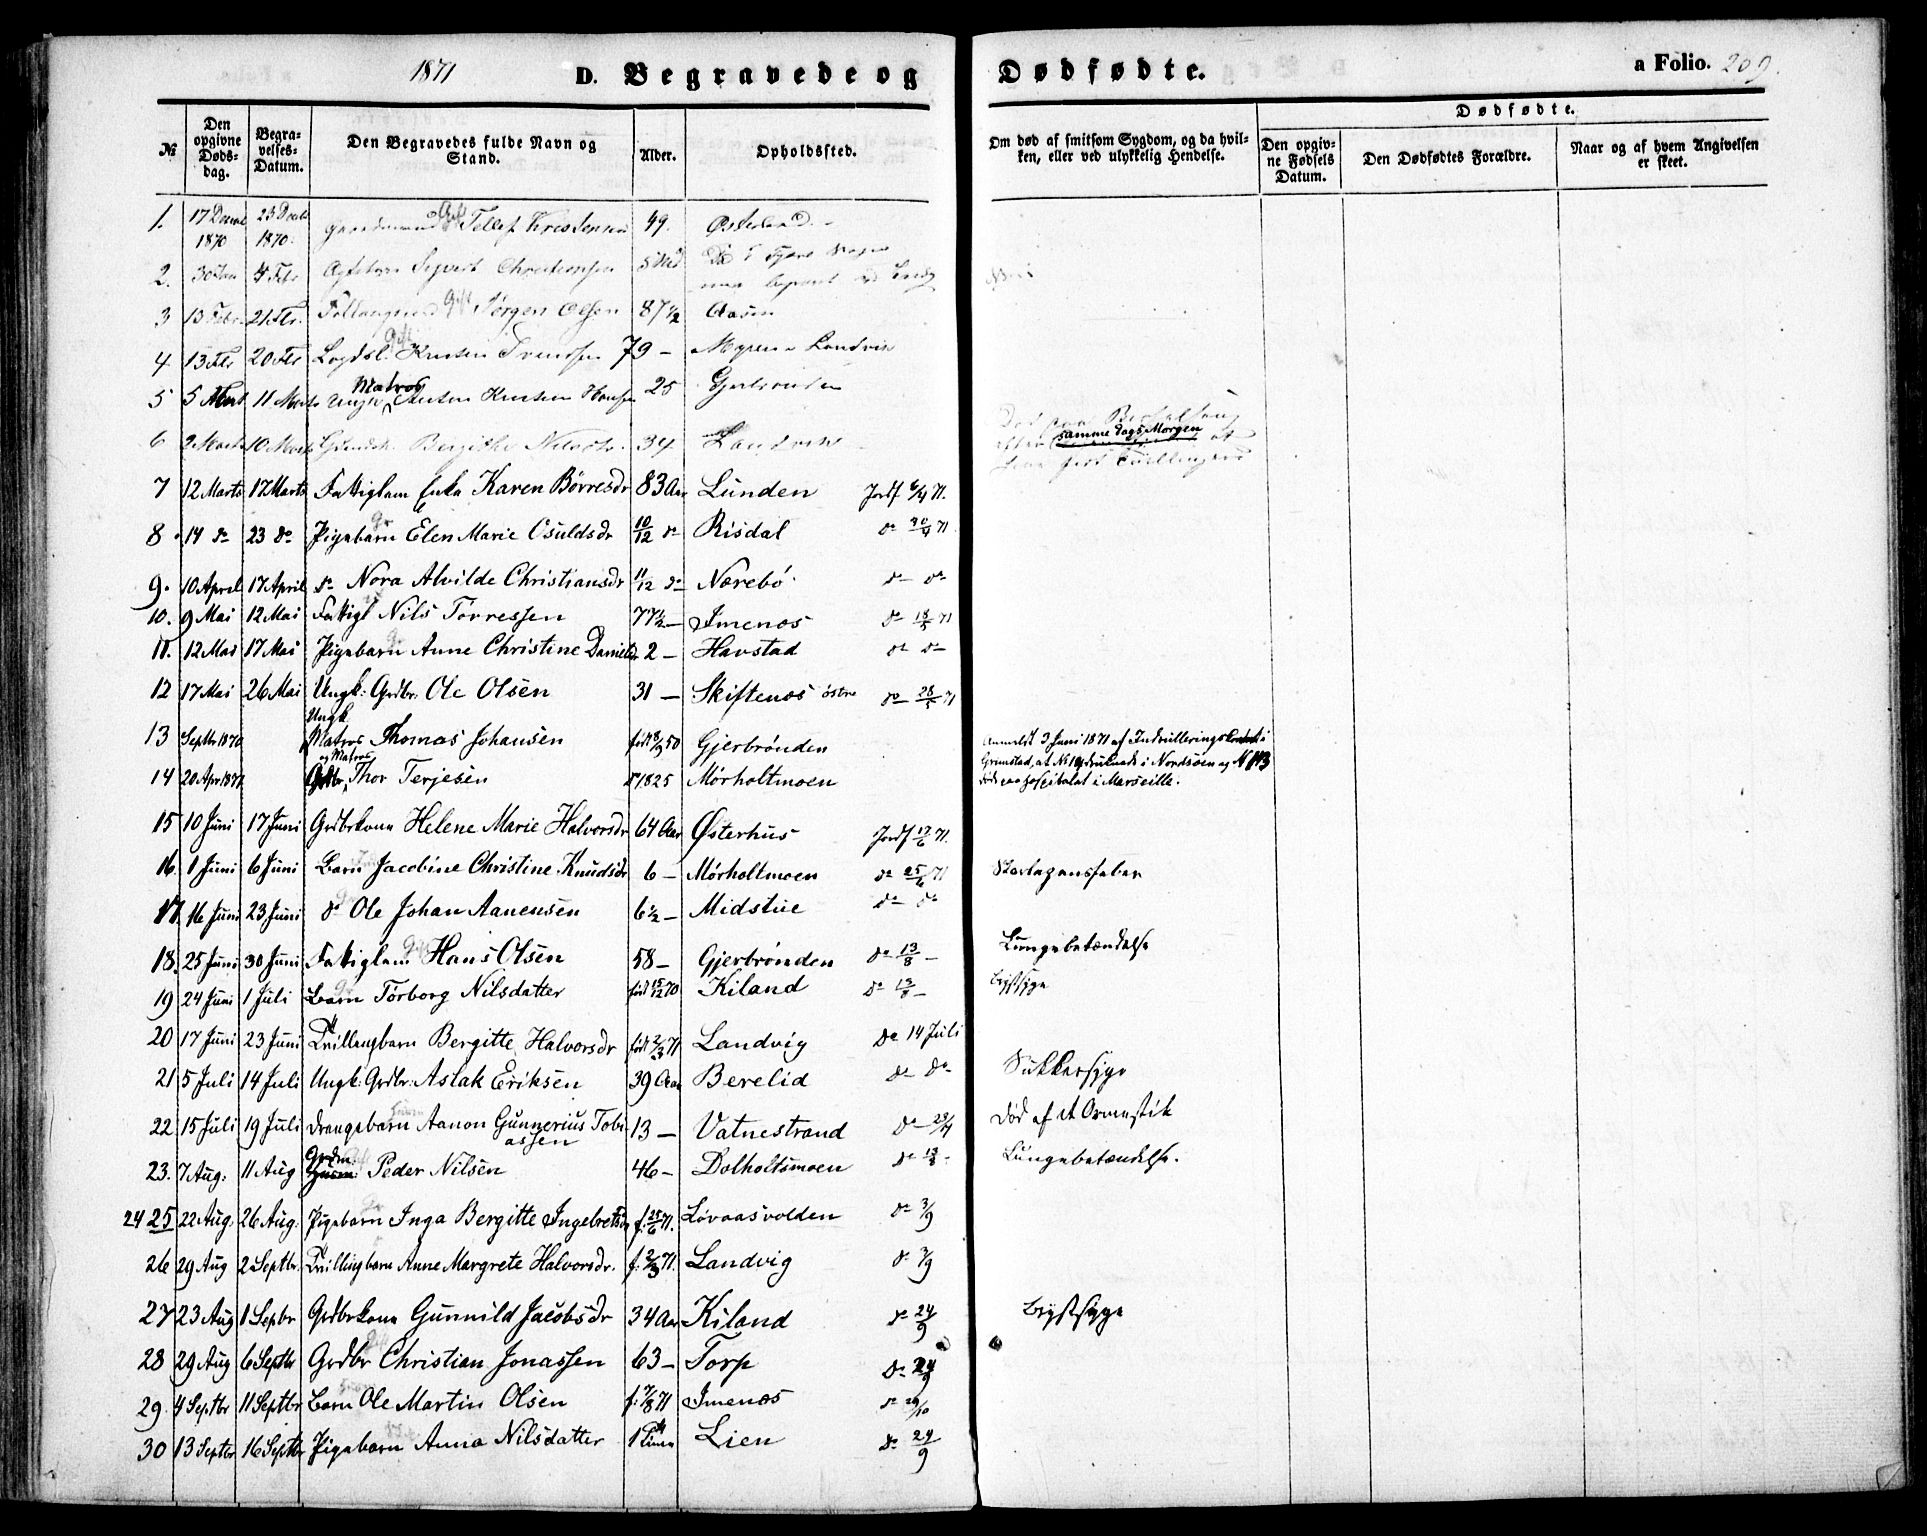 1871 D. Begravede og Dødfødte. a Folio. 209.
№ Den opgivne Døds-dag. Begra-velses-Datum. Den Begravedes fulde Navn og Stand. Alder. Opholdssted. Om død af smitsom Sygdom, og da hvil-ken, eller ved ulykkelig Hendelse. Dødfødte. Den opgiv-ne Fødsels Datum. Den Dødfødtes Forældre. Naar og af hvem Angivelsen er skeet.
1. 17 Decbr 1870 23 Decbr 1870. Gift Tellef Kristensen 49. Østerland
2. 30 Jan 4 Febr Sivert Christensen
3 13 Febr. 21 Febr. Gift Jørgen Olsen 87½ Aasen
4 13 Febr 20 Febr Gift Knusen 79 – Myrene Landvik
5 5 Marts 11 Marts Ungk. Matros Knusen Hansen 25 Gjerbrønden
6 2 Marts 10 Marts Bergithe Nilsdtr. 34 Landvik samme Dags Morgen
7 12 Marts 17 Marts Fattiglem Enke Karen Börresdr 83 Aar Lunden Jordf 6/4 71.
8 14 do 23 do Pigebarn Elen Marie Osuldsdr 10/12 do Risdal do 30/4 71
9. 10 April 17 April do Nora Alvilde Christiansdr 11/12 do Nærebö do do
10. 9 Mai 12 Mai Fattigl Nils Torressen 77½ – Imenos do 18/5 71
11. 12 Mai 17 Mai Pigebarn Anne Christine Danielsdr 2 – Havstad do do
12 17 Mai 26 Mai Ungk. Grdbr. Ole Olsen 31 – Skiftenos östre do 28/5 71
13 Septbr 1870 Ungk Matros Thomas Johansen født 8/9 50 Gjerbrönden Anmeldt 3 Juni 1871 af Indrulleringskontoret i
14 20 Apr 1871 Grdbr. og Matros Thor Terjesen do 1825 Mörholtmoen Grimstad, at No 13 druknede i Nordsöen og No 14 döde paa Hospitalet i Marseille.
15 10 Juni 17 Juni Grdbrkone Helene Marie Halvorsdr 64 Aar Østerhus Jordf 17/6 71.
16. 1 Juni 6 Juni Barn Jacobine Christine Knudsdr 6 – Mörholtmoen do 25/6 71 Skarlagensfeber
17. 16 Juni 23 Juni do Ole Johan Aanensen 6½ – Midstue do do
18. 25 Juni 30 Juni Fattiglem Gift Hans Olsen 58 – Gjerbrönden do 13/8 – Lungebetændelse
19 24 Juni 1 Juli Barn Torborg Nilsdatter født 15/12 70 Kiland do 13/8 – Brystsyge
20 17 Juni 23 Juni Tvillingbarn Bergitte Halvorsdr født 2/3 71 Landvig do 14 Juli
21 5 Juli 14 Juli Ungk. Grdbr. Aslak Eriksen 39 Aar Berelid do do Sukkersyge
22 15 Juli 19 Juli Drengebarn Aanon Gunnerius Tobiassen 13 – Vatnestrand do 23/7 Död af et Ormestik
23. 7 Aug: 11 Aug Grdm: Peder Nilsen 46 – Dolholtsmoen do 13/8 – Lungebetændelse.
24 25 22 Aug: 26 Aug: Pigebarn Inga Bergitte Ingebretsdr f. 25/6 71. Lövaasvolden do 3/9
26 29 Aug 2 Septbr. Tvillingbarn Anne Margrete Halvorsdr. f. 2/3 71. Landvig do 3/9
27 23 Aug 1 Septbr Grdbrkone Gunnild Jacobsdr 34 Aar Kiland do 24/9 Brystsyge
28 29 Aug 6 Septbr Grdbr Christian Jonassen 63 – Torp do 24/9
29 4 Septbr 11 Septbr Barn Ole Martin Olsen f. 7/8 71 Imenos do 29/10
30 13 Septbr 16 Septbr Pigebarn Anna Nilsdatter 1 Time Lien do 24/9